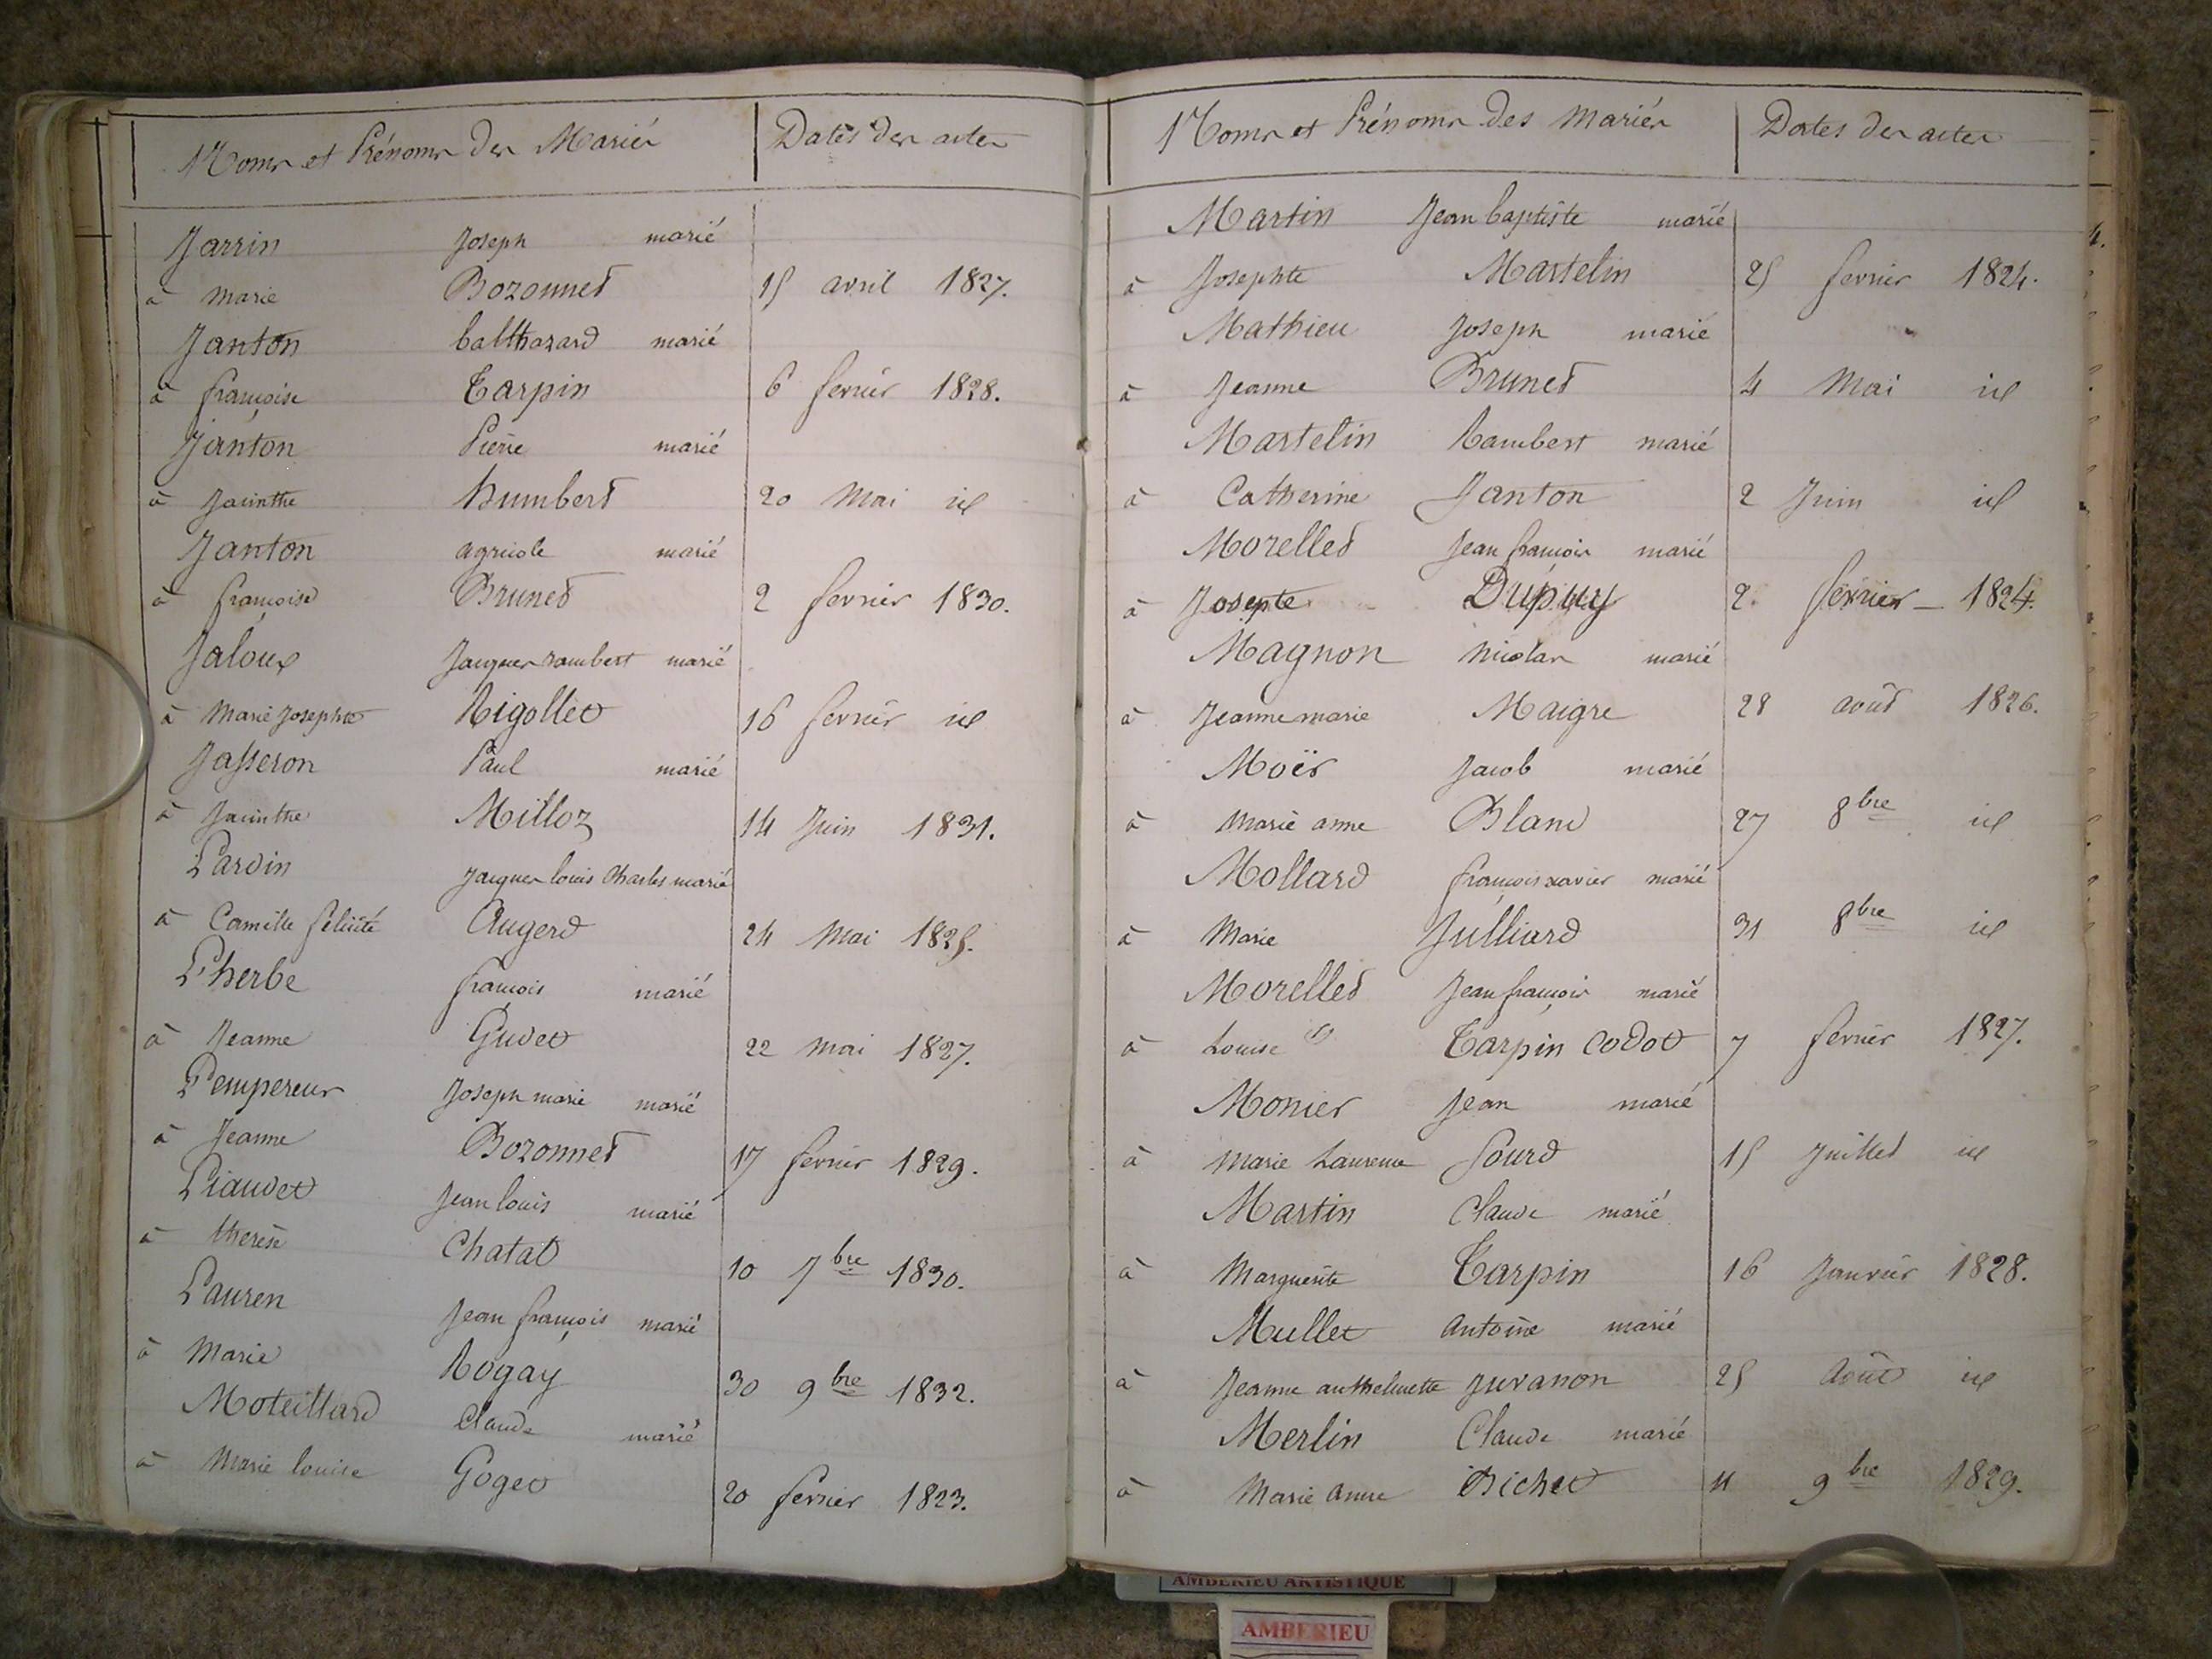 Noms et Prénoms des Mariés Dates des actes
Jarrin Joseph marié
à Marie Bozonnet 15 avril 1827.
Janton balthazard marié
à françoise Tarpin 6 fevrier 1828.
Janton Pierre marié
à Jacinthe humbert 20 Mai id
Janton agricole marié
à françoise Brunet 2 fevrier 1830.
Jaloux Jacques rambert marié
à Marie Josephte Rigollet 16 fevrier id
Jasseron Paul marié
à Jacinthe Milloz 14 Juin 1831.
Lardin Jacques louis Charles marié
à Camille félicité Augerd 24 Mai 1825.
L'herbe françois marié
à Jeanne Gudet 22 mai 1827.
Lempereur Joseph marie marié
à Jeanne Bozonnet 17 fevrier 1829.
Liaudet Jean louis marié
à therèse Chatat 10 7bre 1830.
Lauren Jean françois marié
à Marie Rogay 30 9bre 1832.
Moteillard Claude marié
à Marie louise Goget 20 fevrier 1823.
Noms et Prénoms des Mariés Dates des actes
Martin Jean baptiste marié
à Josephte Martelin 25 fevrier 1824.
Mathieu Joseph marié
à Jeanne Brunet 4 Mai id
Martelin Rambert marié
à Catherine Janton 2 Juin id
Morellet Jean françois marié
à Josepte Dupuy 2 février 1824.
Magnon Nicolas marié
à Jeanne marie Maigre 28 août 1826.
Moër Jacob marié
à Marie anne Blanc 27 8bre id
Mollard françois xavier marié
à Marie Julliard 31 8bre id
Morellet Jean françois marié
à Louise Tarpin Codot 7 fevrier 1827.
Monier Jean marié
à Marie Laurence Sourd 15 Juillet id
Martin Claude marié
à Marguerite Tarpin 16 Janvier 1828.
Mullet Antoine marié
à Jeanne anthelmette Juvanon 25 Août id
Merlin Claude marié
à Marie Anne Bichet 11 9bre 1829.
AMBERIEU ARTISTIQUE
AMBERIEU